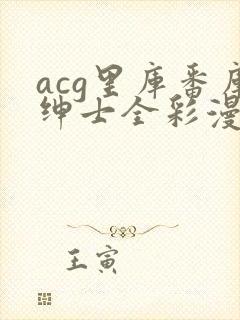 acg里库番库
绅士全彩漫
王寅